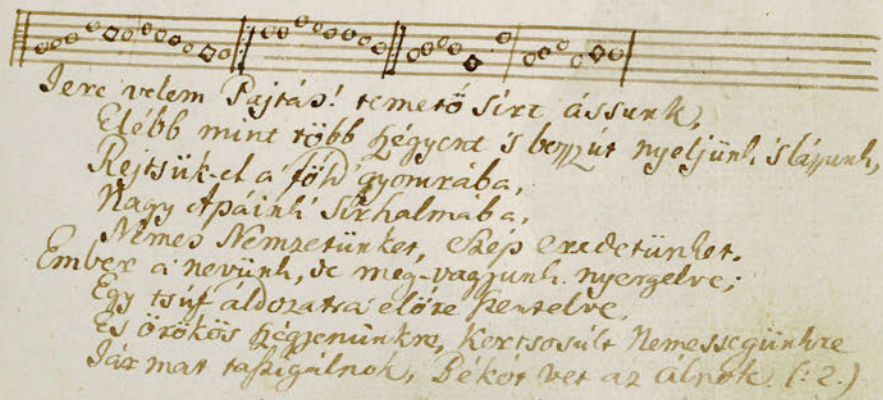 Jere velem Pajtás! temető sírt ássunk,
Elébb mint több szégyent 's boszszút nyeljünk, 's lássunk,
Rejtsük-el a' föld' gyomrába,
Nagy Apáink' sírhalmába,
Nemes Nemzetünket, szép eredetünket.
Ember a' nevünk, de meg-vagyunk nyergelve;
Egy tsúf áldozatra előre szentelve,
És örökös szégyenünkre, Kertsosúlt Nemességünkre
Jármat taszigálnok, Békót vet az álnok (: 2.)